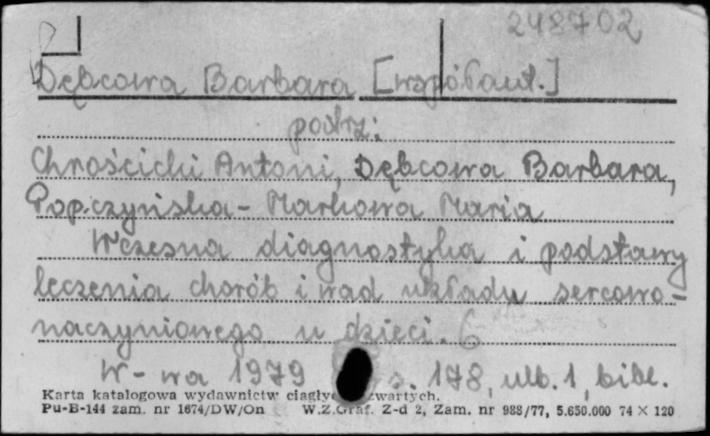 248702
Dębcowa Barbara [współaut.]
patrz:
Chrościcki Antoni, Dębcowa Barbara,
Popczyńska-Markowa Maria
Wczesna diagnostyka i podstawy
leczenia chorób i wad układu sercowo-
naczyniowego u dzieci.
W-wa 1979 s. 178, ulb. 1, bibl.
Karta katalogowa wydawnictw zwartych.
Pu-B-144 zam. nr 1674/DW/On W.Z.Graf. Z-d 2, Zam. nr 988/77, 5.650.000 74 × 120